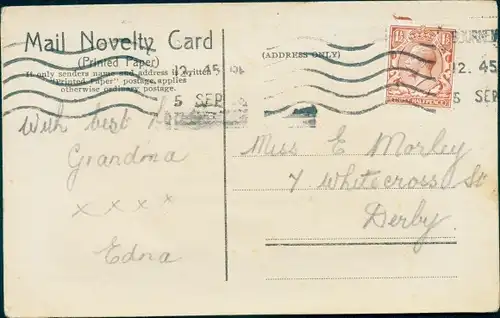 Mail Novelty Card
(Printed Paper)
If only senders name and address is written
"Printed Paper" postage applies
otherwise ordinary postage.
(ADDRESS ONLY)
BOURNEM
12. 45
5 SEP
12. 45
5 SEP
With best
Grandma
x x x x
Edna
Miss E Morley
7 Whitecross St
Derby.